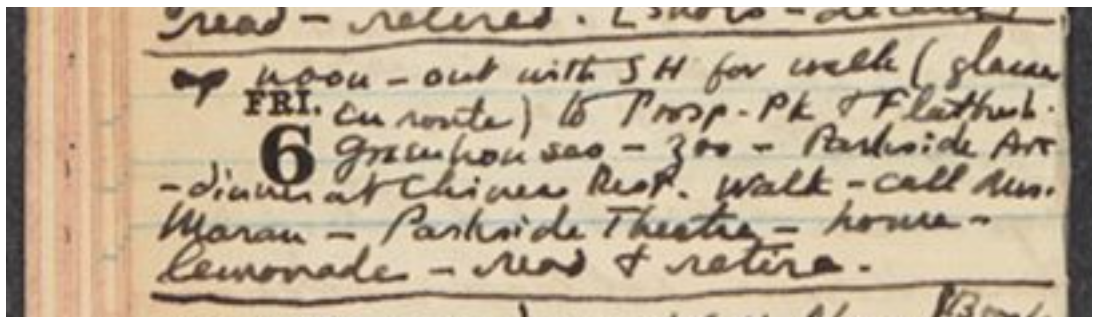 read – retired.
up noon – out with SH for walk (glasses
FRI. en route) to Prosp. Pk & Flatbush.
6 Greenhouses – Zoo – Parkside Ave
– dinner at Chinese Rest. walk – call Mrs.
Moran – Parkside Theatre – home –
lemonade – read & retire.